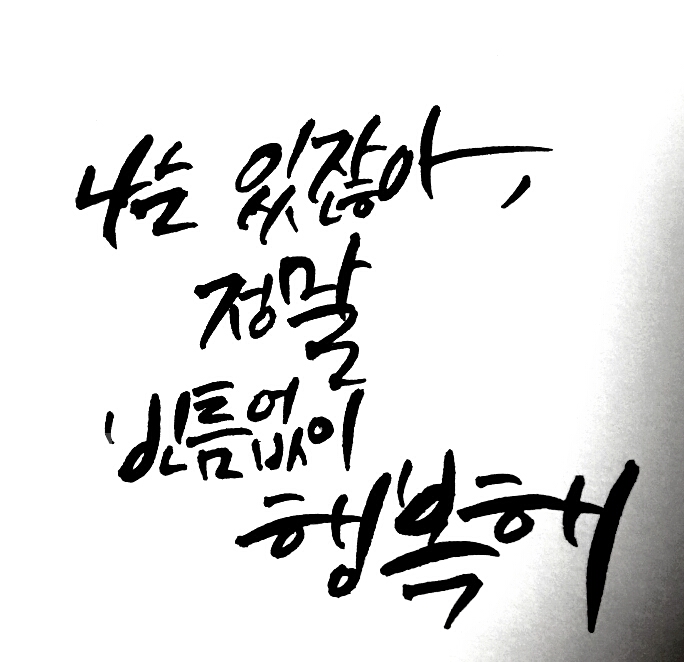 나는 있잖아,
정말
빈틈없이
행복해